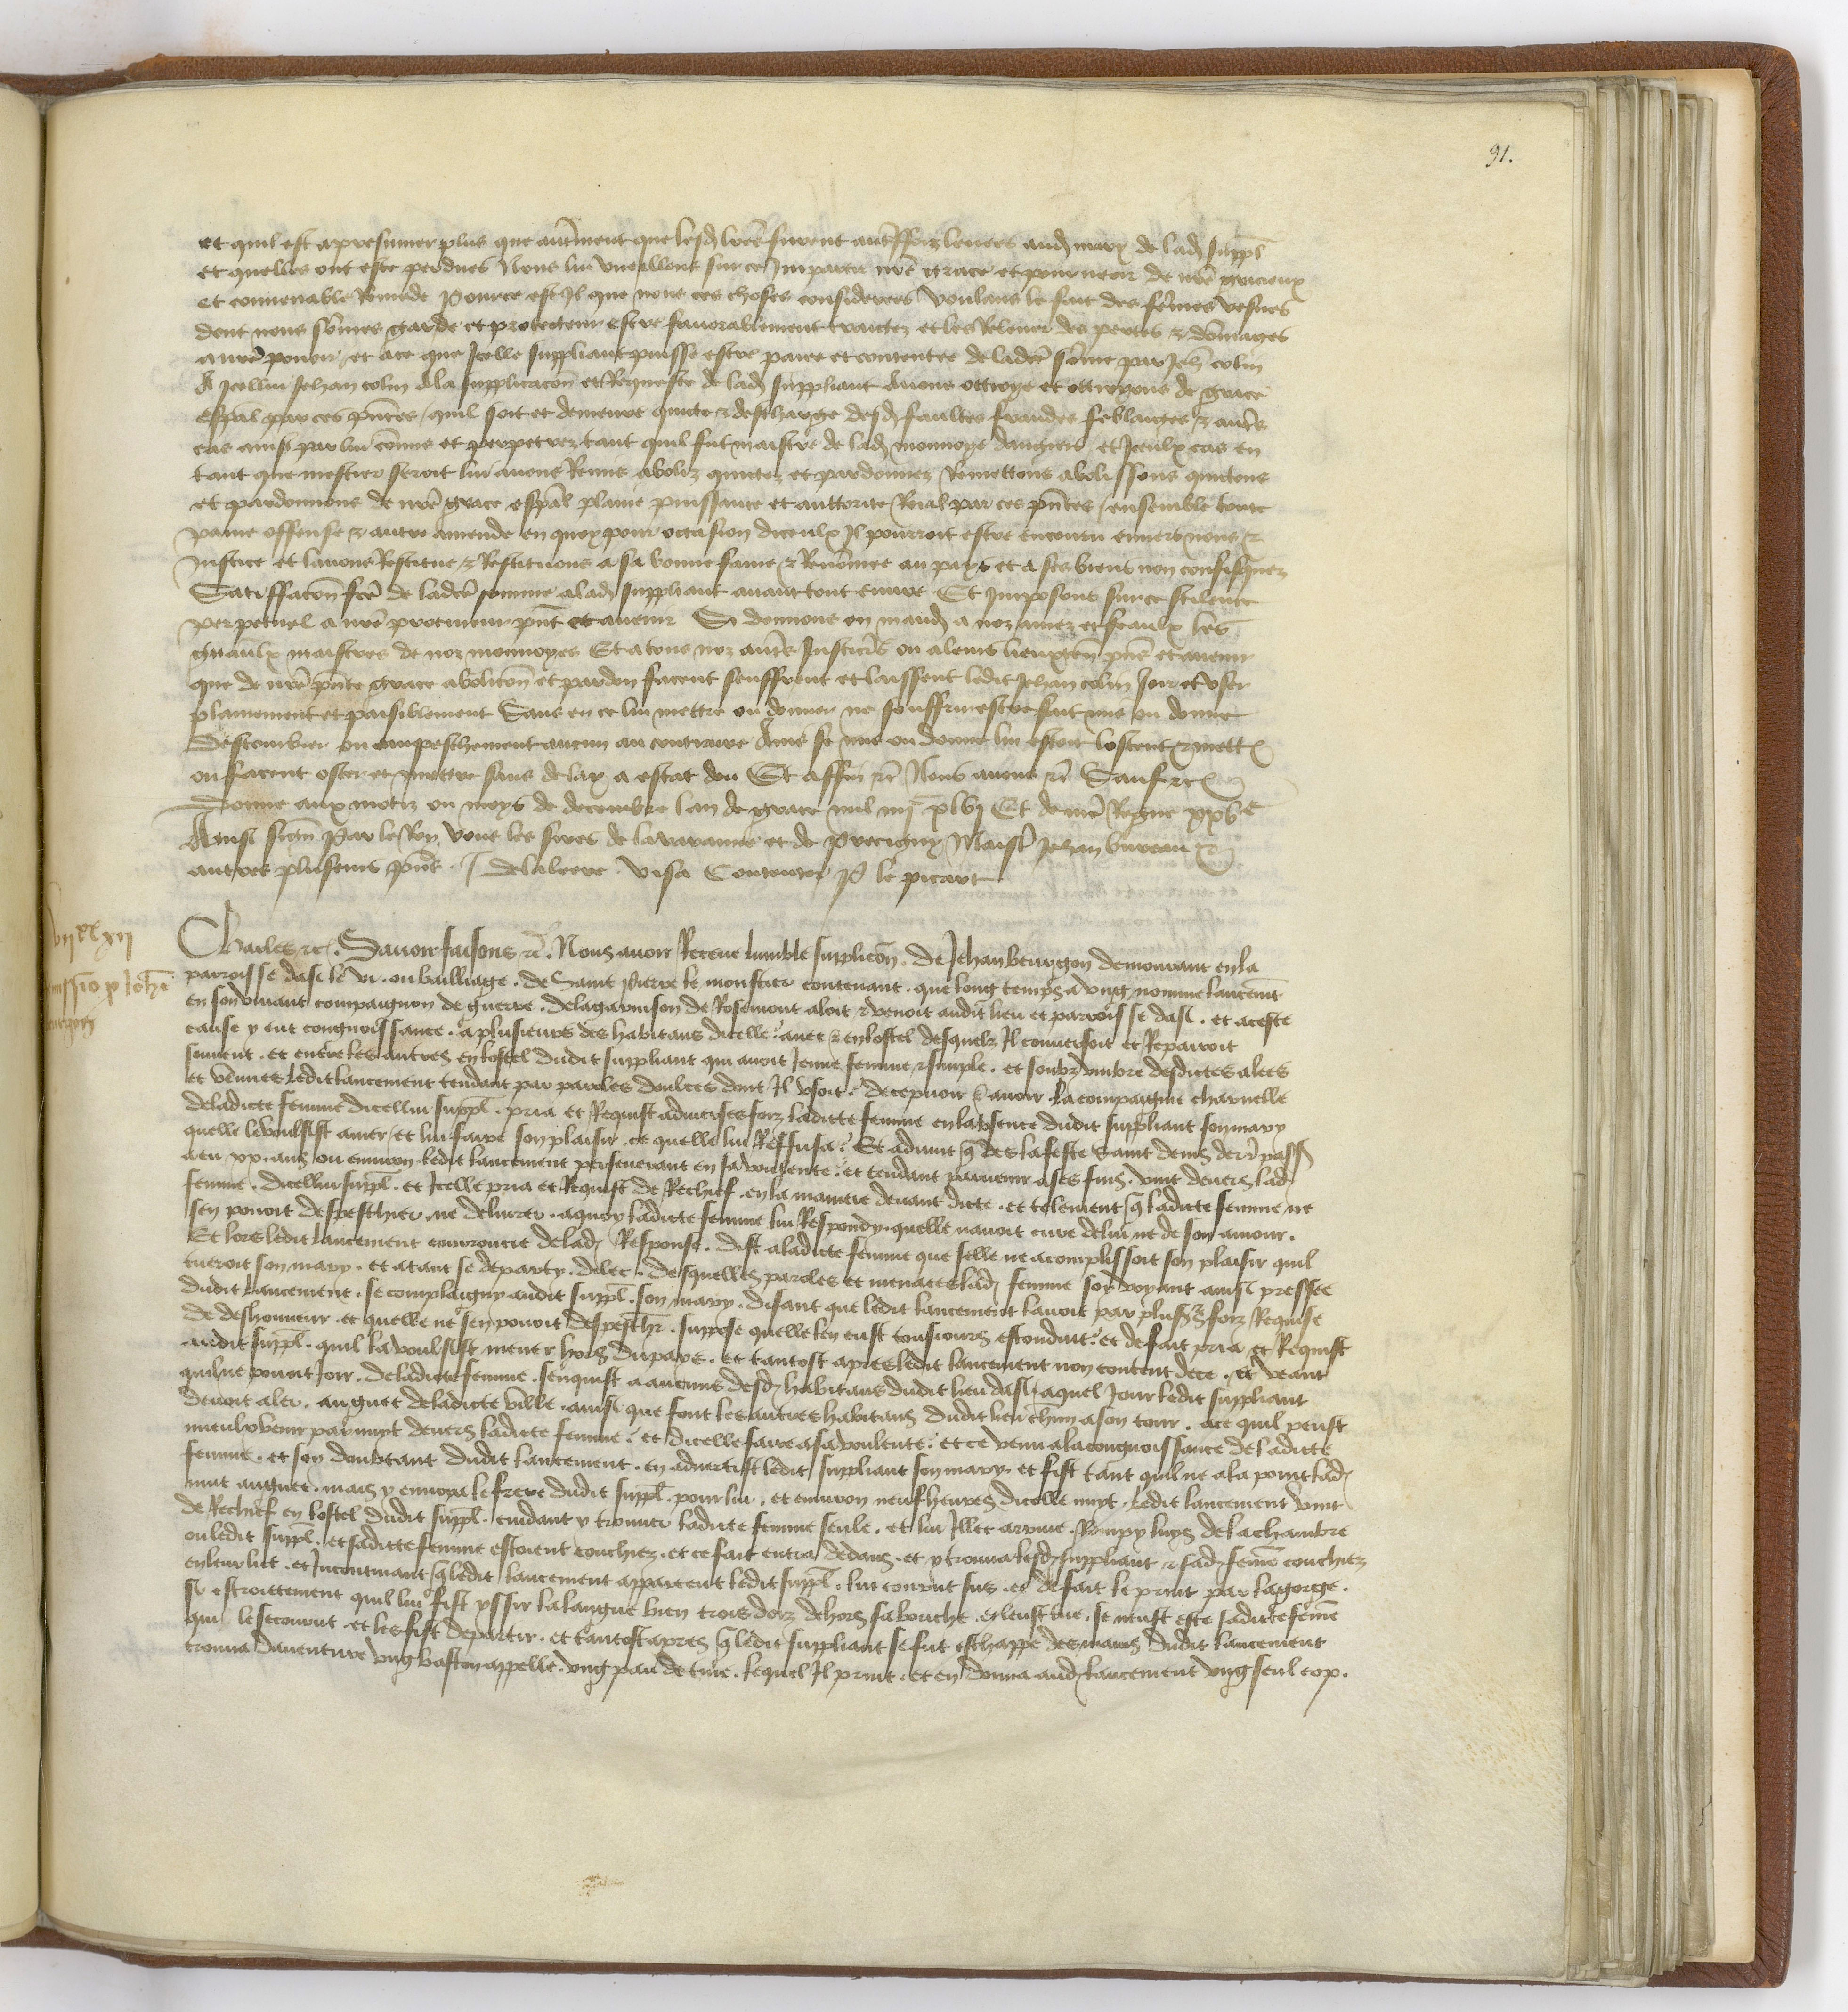 91.
et quil est a presumer plus que autrement que lesd. lres furent autresfoiz leuees aud. mary de lad. suppl
et quelles ont este perdues Nous lui vueillons sur ce Impartir nre grace et pourueoir de nre gracieux
et conuenable Remede Pource est Il que nous ces choses considerees voulans le fait des femes vefues
dont nous somes garde et protecteur estre fauorablement traictez et les Releuer des pertes & domages
a nre pouoir / et a ce que Icelle suppliant puisse estre paiee et contentee de ladce some par Jeh colin
A Icellui Jehan colin Ala supplicacon et Requeste de lad suppliant Auons ottroye et ottroyons de grace
espal par ces pntes / quil soit et demeure quicte & deschargé desd faultes fraudes & autrs
cas ainsi par lui comis et perpetrez tant quil fut maistre de lad monnoye dangiers et Iceulx cas en
tant que mestier seroit lui auons Remis aboliz quictez et pardonnez Remettons abolissons quictons
et pardonnons de nre grace espal plaine puissance et auttorite Roial par ces pntes / ensemble toute
paine offense & autre amende en quoy pour occasion diceulx Il pourroit estre encouru enuers nous &
justice et lauons Restitue & Restituons a sa bonne fame & Renomee au pays et a ses biens non confisquez
Satisffacon fce de ladce somme a lad suppliant auant tout euure Et Imposons sur ce silence
perpetuel a nre procureur pnt et auenir Si donnons en mand a noz amez et feaulx les
gnaulx maistres de noz monnoyes Et a tous noz autrs Justicrs ou a leurs lieuxten pns et auenir
que de nre pnte grace abolicon et pardon facent seuffrent et laissent ledit Jehan colin Joir et vser
plainement et paisiblement Sans en ce lui mettre ou donner ne souffrir estre fait mis ou donne
destourbier ou empeschement aucun au contraire Ains se mis ou donne lui estoit lostent & mettet
ou facent oster et mettre sans delay a estat deu Et affin &c Nous auons &c Sauf &c
Donne aux motiz ou moys de decembre lan de grace mil iiijc xlvj Et de nre Regne xxve
Ainsi sign Par le Roy vous les sires de la varanne et de precigny Maistre Jehan bureau &
autres plusieurs pns / Delaloere visa Contentor P le picart
vijxxxij
Remissio p Johe
bourgon
Charles &c. Sauoir faisons &c. Nous auoir Receue lumble supplicon . de Jehan bourgon demourant en la
parroisse dasi le vi . ou bailliage . de Saint Pierre le monstier contenant . que long temps a vng nomme lancemt
en son viuant compaignon de guerre . de la garnison de Rosemont aloit & venoit audit lieu et parroisse dasi . et a ceste
cause y eut congnoissance . a plusieurs des habitans dicelle . auec & en lostel desquelz Il conuersoit et Repairoit
souuent . et entre les autres en lostel dudit suppliant qui auoit Jeune femme & simple . et soubz vmbre desdictes alees
et venues Ledit lancement tendant par paroles doulces dont Il vsoit . deceuoir & auoir la compaignie charnelle
de ladicte femme dicellui suppl . pria et Requist a diuerses foiz ladicte femme en labsence dudit suppliant son mary
quelle le voulsist amer / et lui faire son plaisir . ce quelle lui Reffusa . Et aduint q des la feste Saint denis derr pass
a eu xv . ans ou enuiron . ledit lancement perseuerant en sa voulente . et tendant paruenir a ses fins . vint deuers lad
femme . dicellui suppl . et Icelle pria et Requist de Rechief . en la maniere deuant dicte . et telement q ladicte femme ne
sen pouoit despeschier ne deliurer . a quoy ladicte femme lui Respondy . quelle nauoit cure de lui ne de son amour .
Et lors ledit lancement courroucie de lad Response . dist a ladicte femme que selle ne acomplissoit son plaisir quil
tueroit son mary . et atant se departy . dilec . desquelles paroles et menaces lad femme soy voyant ainsi pressee
dudit lancement . se complaigny audit suppl . son mary . disant que ledit lancement lauoit par plusrs foiz Requise
de deshonneur . et quelle ne sen pouoit despeschr . suppose quelle len eust tousiours esconduit . et de fait pria et Requist
audit suppl . quil la voulsist mener hors du pays . et tantost apres ledit lancement non content de ce . et veant
quil ne pouoit Joir . de ladicte femme . senquist a aucuns desd habitans dudit lieu dasi / a quel Jour ledit suppliant
deuoit aler . au guet de ladicte ville . ainsi que font les autres habitans dudit lieu chun a son tour . a ce quil peust
mieulx venir par nuyt deuers ladicte femme . et dicelle faire a sa voulente . et ce venu a la congnoissance de ladicte
femme . et soy doubtant dudit lancement . en aduertist ledit suppliant son mary . et fist tant quil ne ala point lad
nuit au guet . mais y enuoya le frere dudit suppl . pour lui . et enuiron neuf heures dicelle nuyt . ledit lancement vint
de Rechief en lostel dudit suppl . cuidant y trouuer ladicte femme seule . et lui Illec arriue . Rompy luys de la chambre
ou ledit suppl . et sadicte femme estoient couchiez . et ce fait entra dedans . et y trouua lesd suppliant & sad feme couchiez
en leur lict . et Incontinant q ledit lancement apparceut ledit suppl . lui courut sus . et de fait le print par la gorge .
si estroittement quil lui fist yssir la langue bien trois doiz dehors sa bouche . et leust tue . se neust este sadicte feme
qui le secourut . et les fist departir . et tantost apres q ledit suppliant se fut eschappe des mains dudit lancement
trouua dauenture vng baston appelle . vng pau de tine . lequel Il print . et en donna aud lancement vng seul cop .